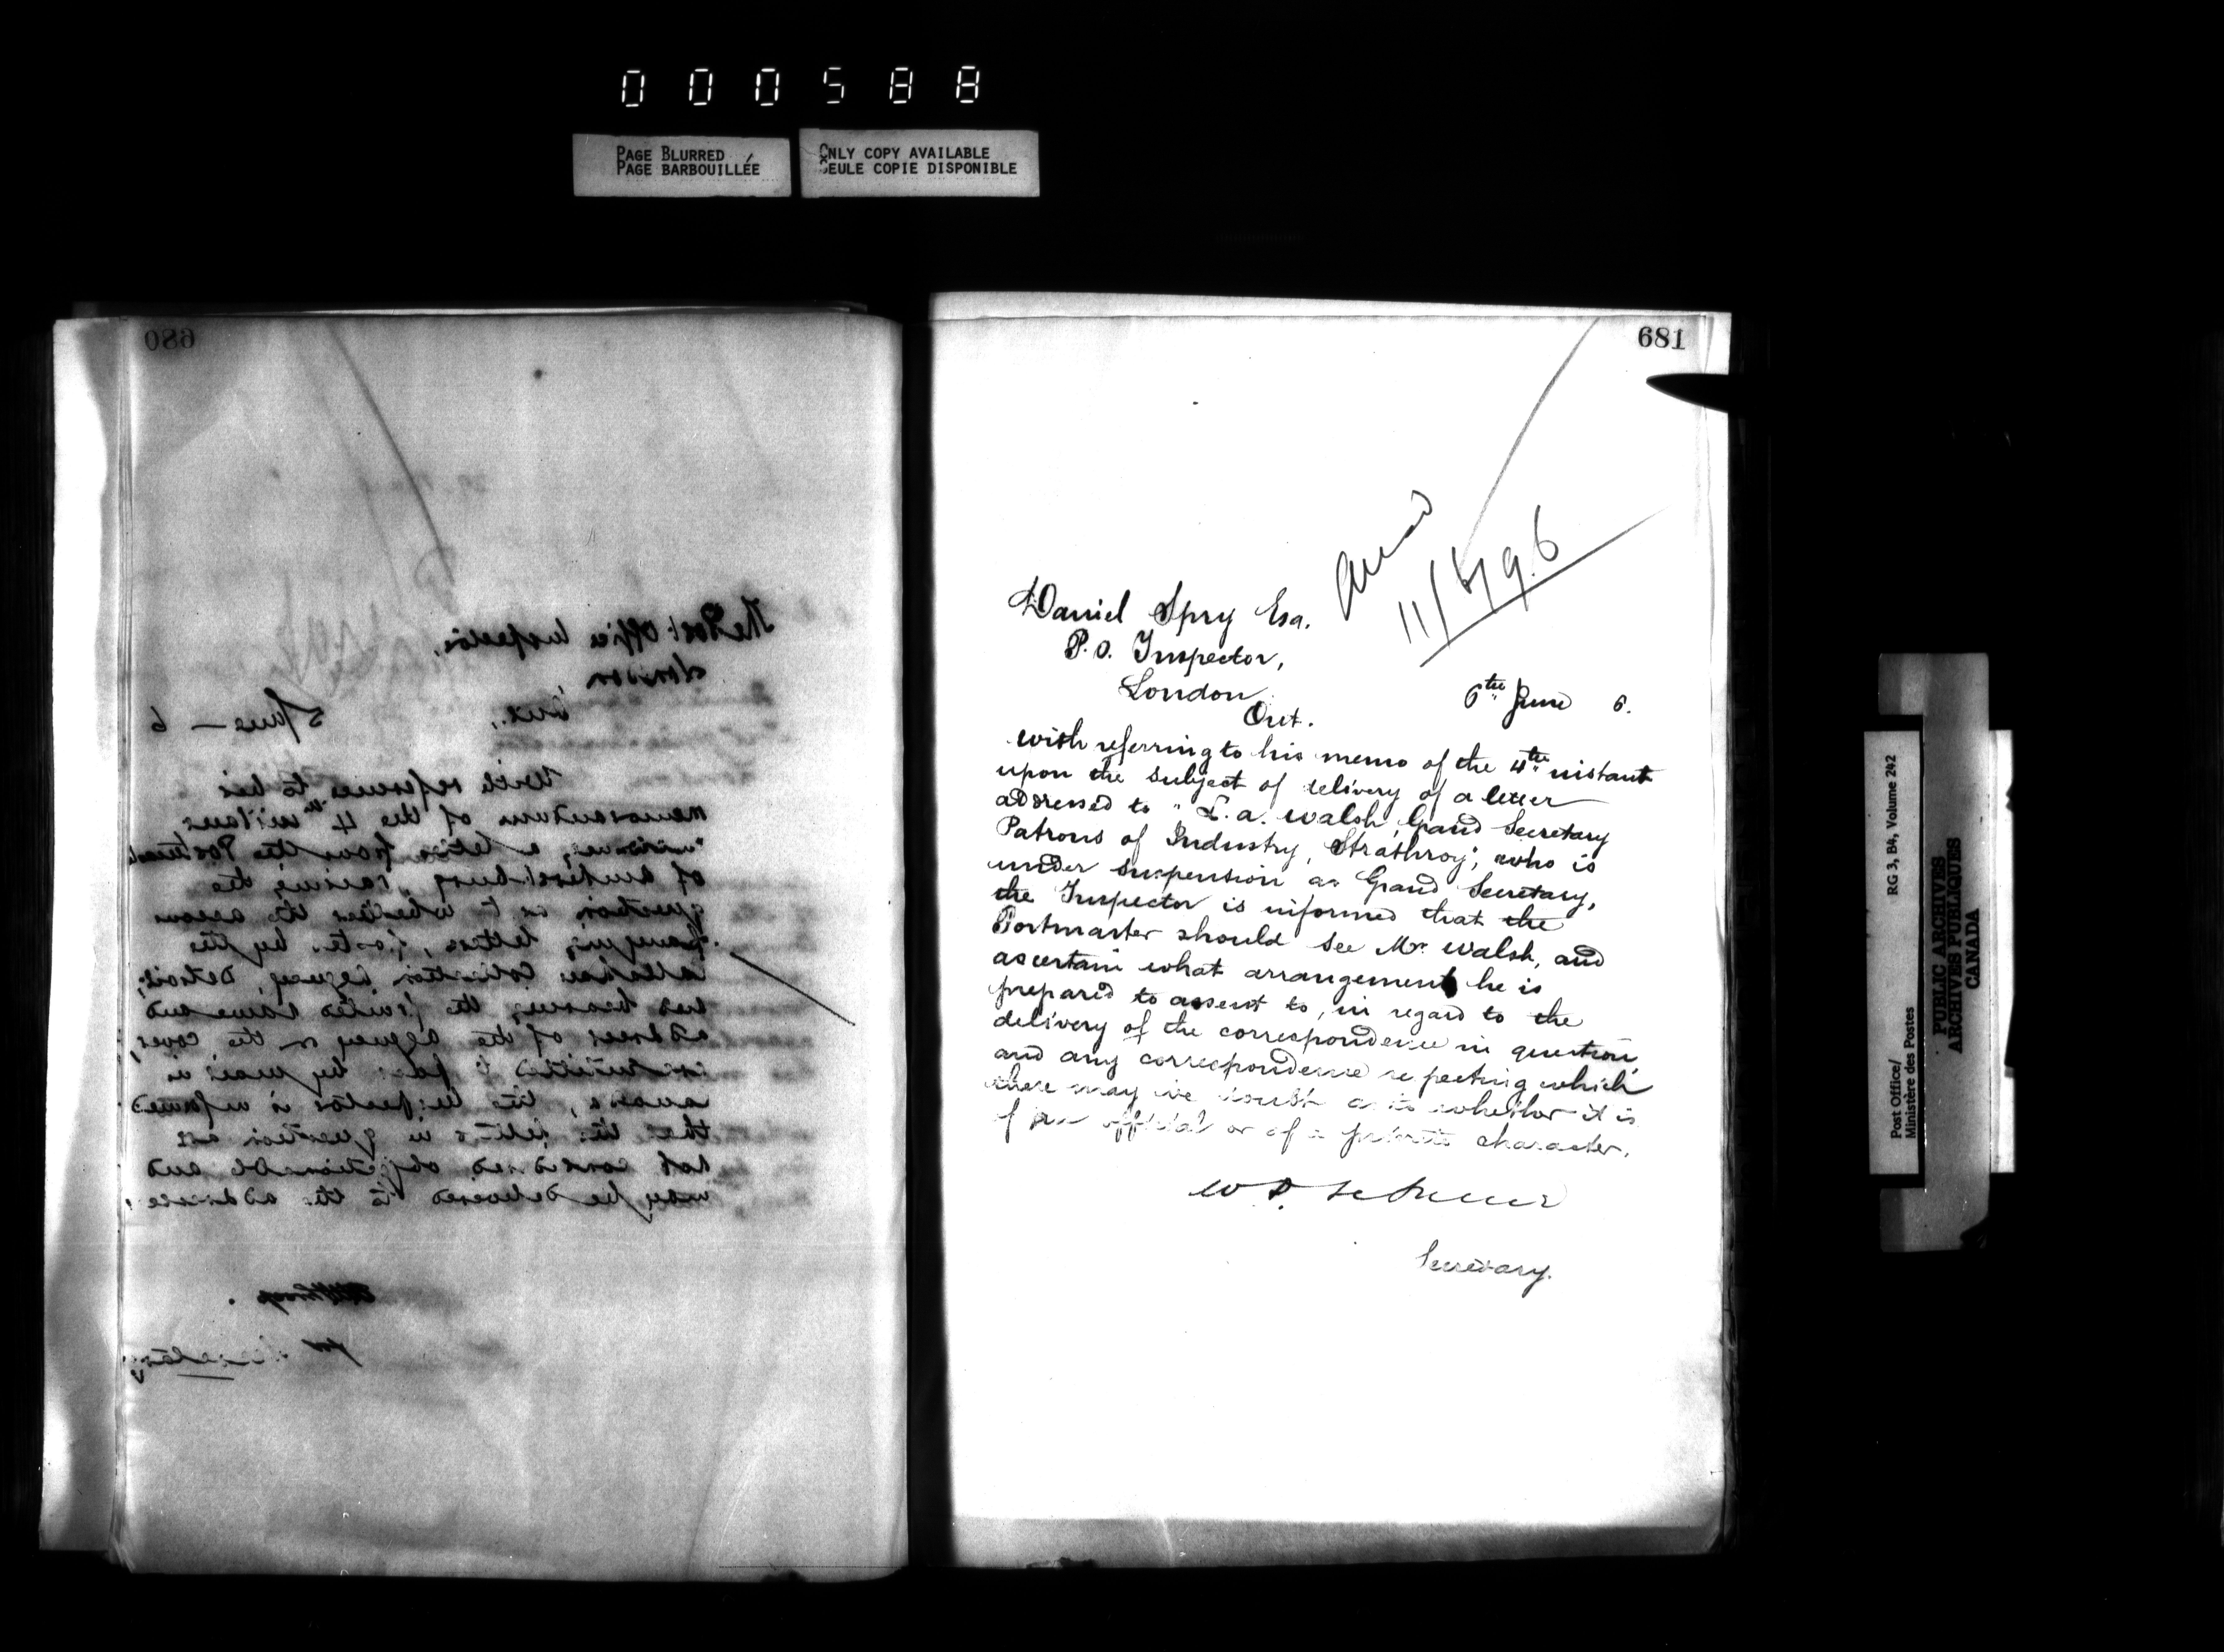 000588
PAGE BLURRED
PAGE BARBOUILLÉE
ONLY COPY AVAILABLE
SEULE COPIE DISPONIBLE
680
The Post Office Inspector,
London,
Ont.,
5 June — 6
With reference to his
memorandum of the 4th instant
a letter from the Postmaster
of Amherstburg, raising the
question as to whether the accom
panying letters, posted by the
Collection Agency, Detroit,
and bearing the printed name and
address of the agency on the cover,
permitted to pass by mail in
Canada, the Inspector is informed
that the letters in question are
not considered objectionable and
may be delivered to the addressee,
for Secretary
681
11/6/96
Daniel Spry Esq.
P.O. Inspector,
London
Ont.
6th June 6.
With referring to his memo of the 4th instant
upon the subject of delivery of a letter
addressed to "L.A. Walsh, Grand Secretary
Patrons of Industry, Strathroy", who is
under suspension as Grand Secretary,
the Inspector is informed that the
Postmaster should see Mr Walsh, and
ascertain what arrangement he is
prepared to assent to, in regard to the
delivery of the correspondence in question
and any correspondence respecting which
there may be doubt as to whether it is
of an official or of a private character.
Secretary.
Post Office/
Ministère des Postes
RG 3, B4, Volume 242
PUBLIC ARCHIVES
ARCHIVES PUBLIQUES
CANADA